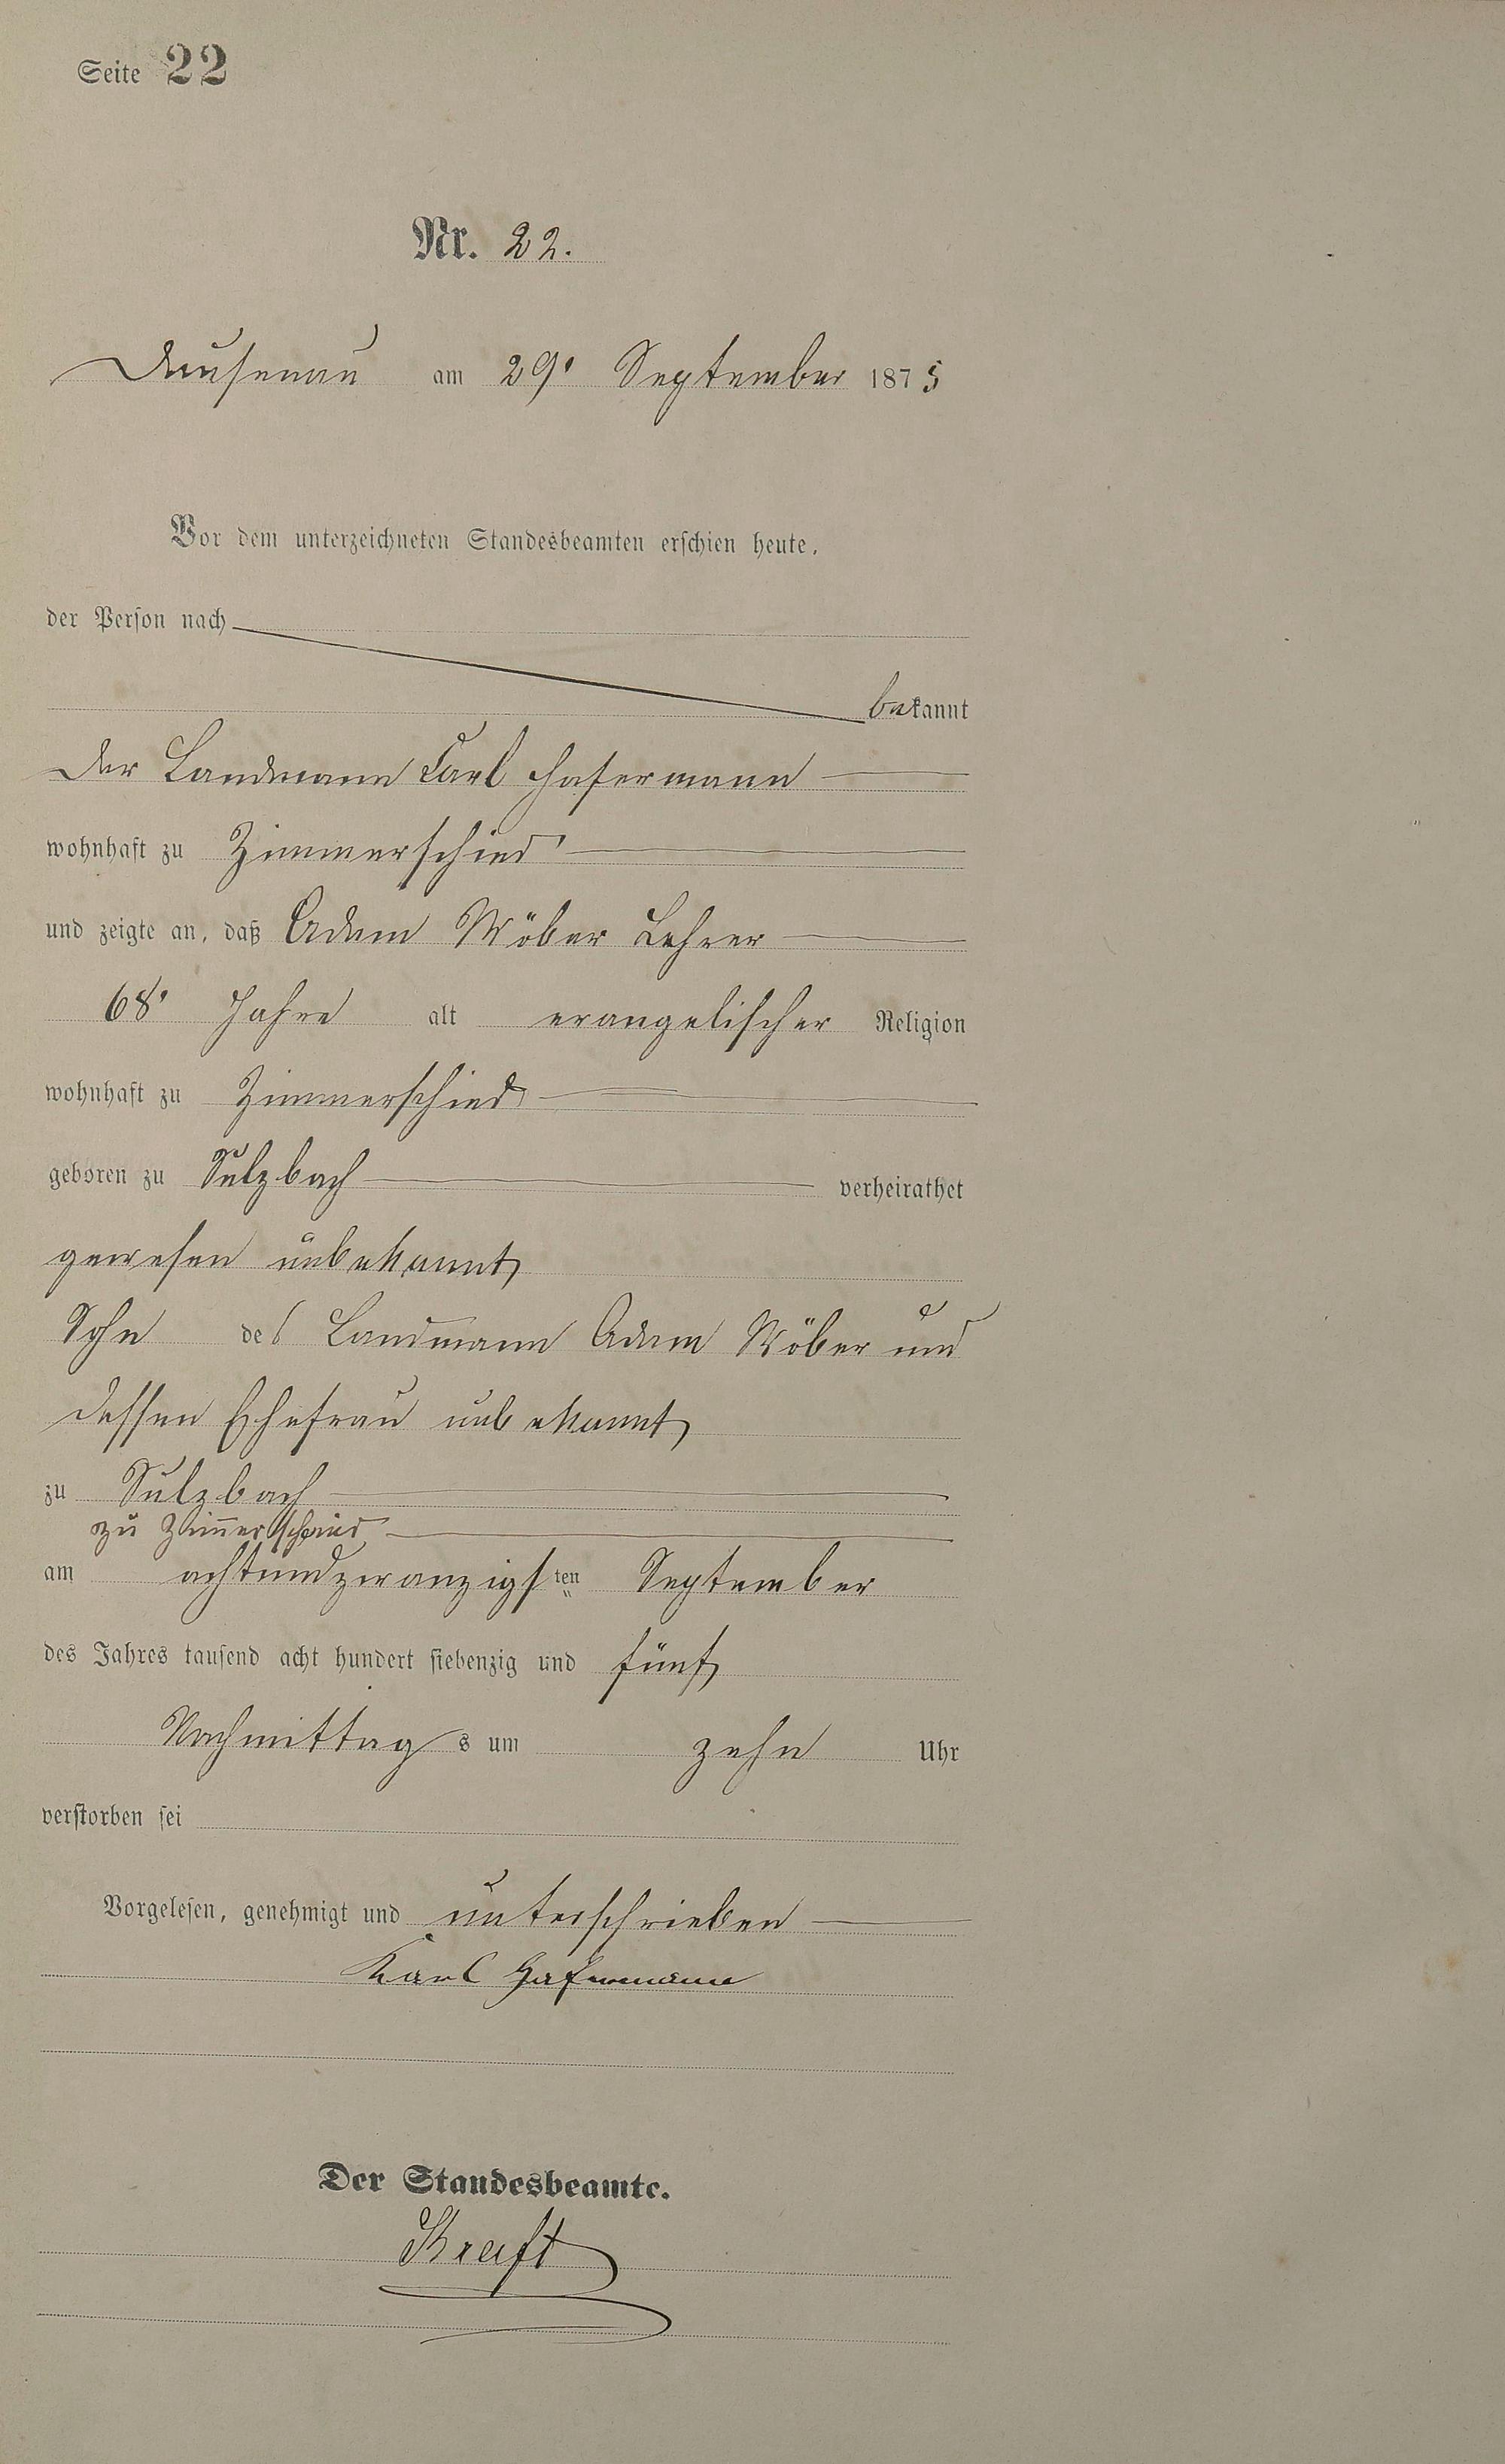 Seite 22
Nr. 22.
Dausenau am 29. September 1875
Vor dem unterzeichneten Standesbeamten erschien heute,
der Person nach
bekannt
der Landmann Carl Hafermann
wohnhaft zu Zimmerschied
und zeigte an, daß Adam Wöber Lehrer
68 Jahre alt evangelischer Religion
wohnhaft zu Zimmerschied
geboren zu Sulzbach verheirathet
gewesen unbekannt
Sohn des Landmann Adam Wöber und
dessen Ehefrau unbekannt
zu Sulzbach
zu Zimmerschied
am achtundzwanzigsten September
des Jahres tausend acht hundert siebenzig und fünf
Nachmittags um zehn Uhr
verstorben sei
Vorgelesen, genehmigt und unterschrieben
Karl Hafermann
Der Standesbeamte.
Kraft